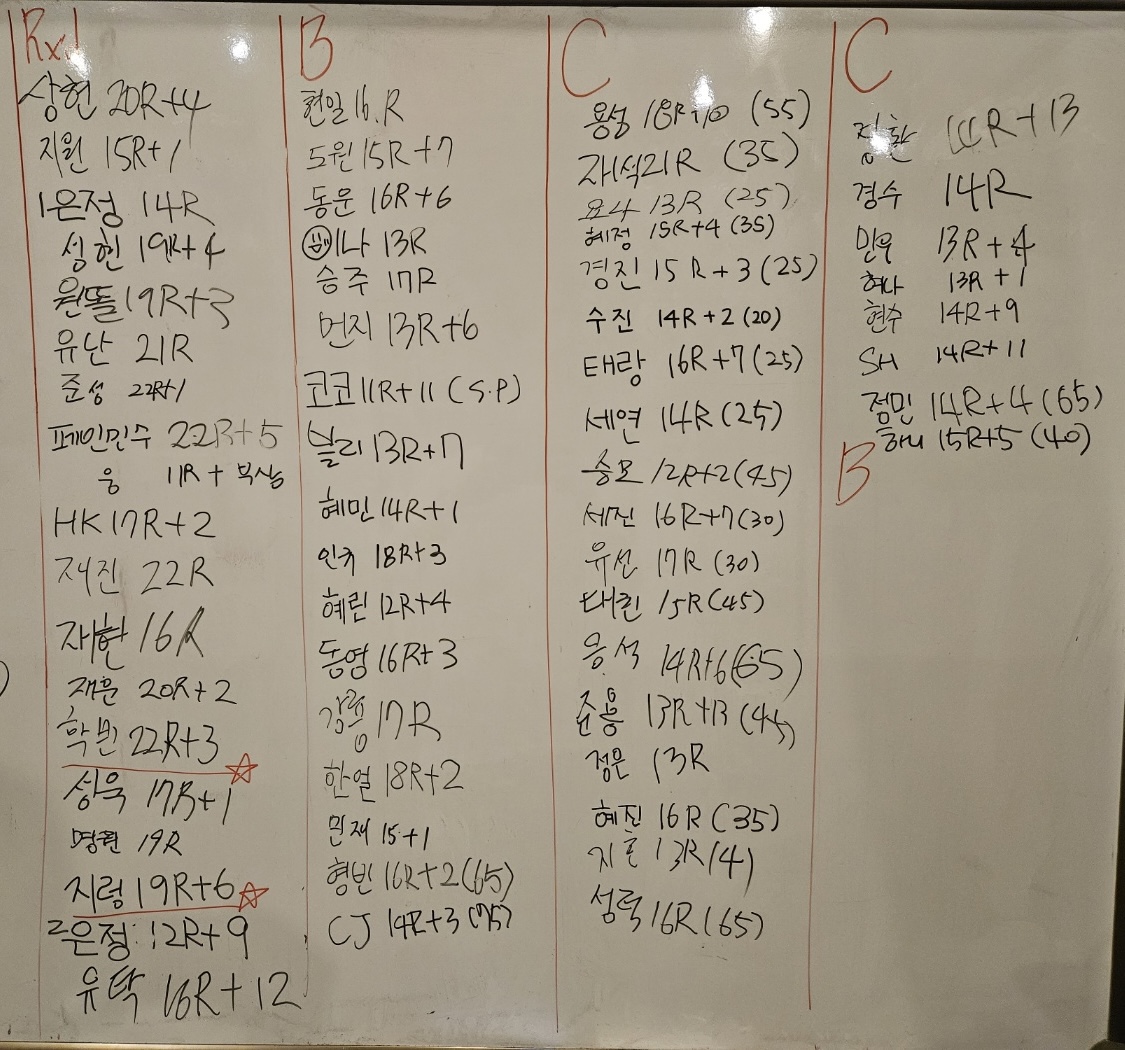 Rxd
상헌 20R+4
지원 15R+1
1은정 14R
성헌 19R+4
원똘 19R+3
유난 21R
준성 22R+1
페인민수 22R+5
웅 11R + 부상
HK 17R+2
재진 22R
재현 16R
재훈 20R+2
학빈 22R+3
성욱 17R+1
명원 19R
지렁 19R+6
2은정 12R+9
유탁 16R+12
B
현일 16.R
도원 15R+7
동운 16R+6
이나 13R
승주 17R
먼지 13R+6
코코 11R+11 (S.P)
블리 13R+7
혜민 14R+1
인규 18R+3
혜린 12R+4
동영 16R+3
강룡 17R
한얼 18R+2
민재 15+1
형빈 16R+2 (65)
CJ 14R+3 (75)
C
용성 18R+10 (55)
재석 21R (35)
13R (25)
혜정 15R+4 (35)
경진 15R+3 (25)
수진 14R+2 (20)
태랑 16R+7 (25)
세연 14R (25)
승모 12R+2 (45)
세진 16R+7 (30)
유선 17R (30)
태린 15R (45)
응석 14R+6 (65)
준용 13R+13 (45)
정은 13R
혜진 16R (35)
지훈 13R (4)
성력 16R (65)
C
정환 R+13
경수 14R
민우 13R+4
하나 13R+1
현수 14R+9
SH 14R+11
점민 14R+4 (65)
하니 15R+5 (40)
B